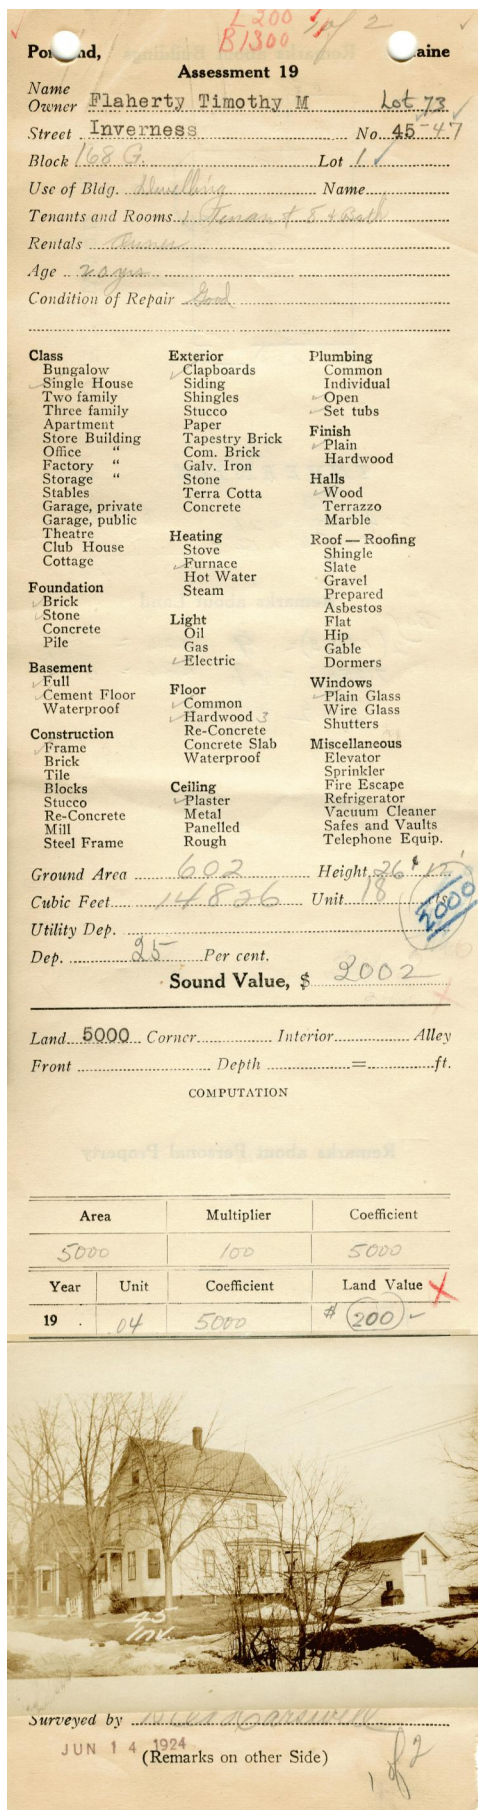 L 200
B 1300
1 of 2
Portland, Maine
Assessment 19
Name
Owner Flaherty Timothy M Lot 73
Street Inverness No. 45-47
Block 168 G. Lot 1
Use of Bldg. Dwelling Name
Tenants and Rooms 1 Tenant 8 + Bath
Rentals Owner
Age 20 yrs
Condition of Repair Good
Class
Bungalow
Single House
Two family
Three family
Apartment
Store Building
Office "
Factory "
Storage "
Stables
Garage, private
Garage, public
Theatre
Club House
Cottage
Foundation
Brick
Stone
Concrete
Pile
Basement
Full
Cement Floor
Waterproof
Construction
Frame
Brick
Tile
Blocks
Stucco
Re-Concrete
Mill
Steel Frame
Exterior
Clapboards
Siding
Shingles
Stucco
Paper
Tapestry Brick
Com. Brick
Galv. Iron
Stone
Terra Cotta
Concrete
Heating
Stove
Furnace
Hot Water
Steam
Light
Oil
Gas
Electric
Floor
Common
Hardwood 3
Re-Concrete
Concrete Slab
Waterproof
Ceiling
Plaster
Metal
Panelled
Rough
Plumbing
Common
Individual
Open
Set tubs
Finish
Plain
Hardwood
Halls
Wood
Terrazzo
Marble
Roof — Roofing
Shingle
Slate
Gravel
Prepared
Asbestos
Flat
Hip
Gable
Dormers
Windows
Plain Glass
Wire Glass
Shutters
Miscellaneous
Elevator
Sprinkler
Fire Escape
Refrigerator
Vacuum Cleaner
Safes and Vaults
Telephone Equip.
Ground Area 602 Height 26
Cubic Feet 14826 Unit 18
2000
Utility Dep.
Dep. 25 Per cent.
Sound Value, $ 2002
Land 5000 Corner Interior Alley
Front Depth = ft.
COMPUTATION
Area Multiplier Coefficient
5000 100 5000
Year Unit Coefficient Land Value
19 .04 5000 $ 200
45
Inv.
Surveyed by
JUN 14 1924
(Remarks on other Side)
1 of 2